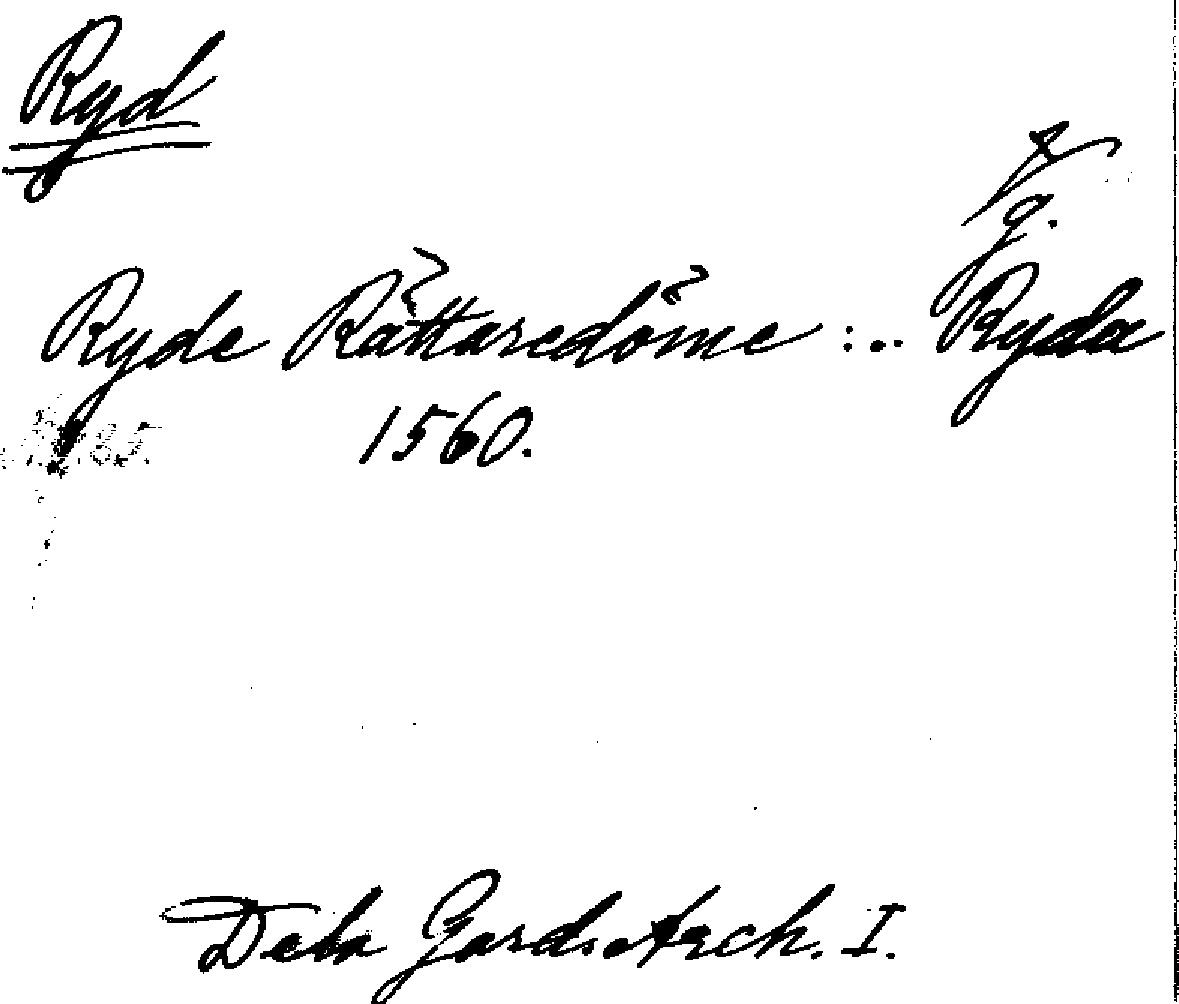 Ryd
g.
Ryde Rättaredöme :.. Ryda
1560.
Dela Gard. Arch. I.